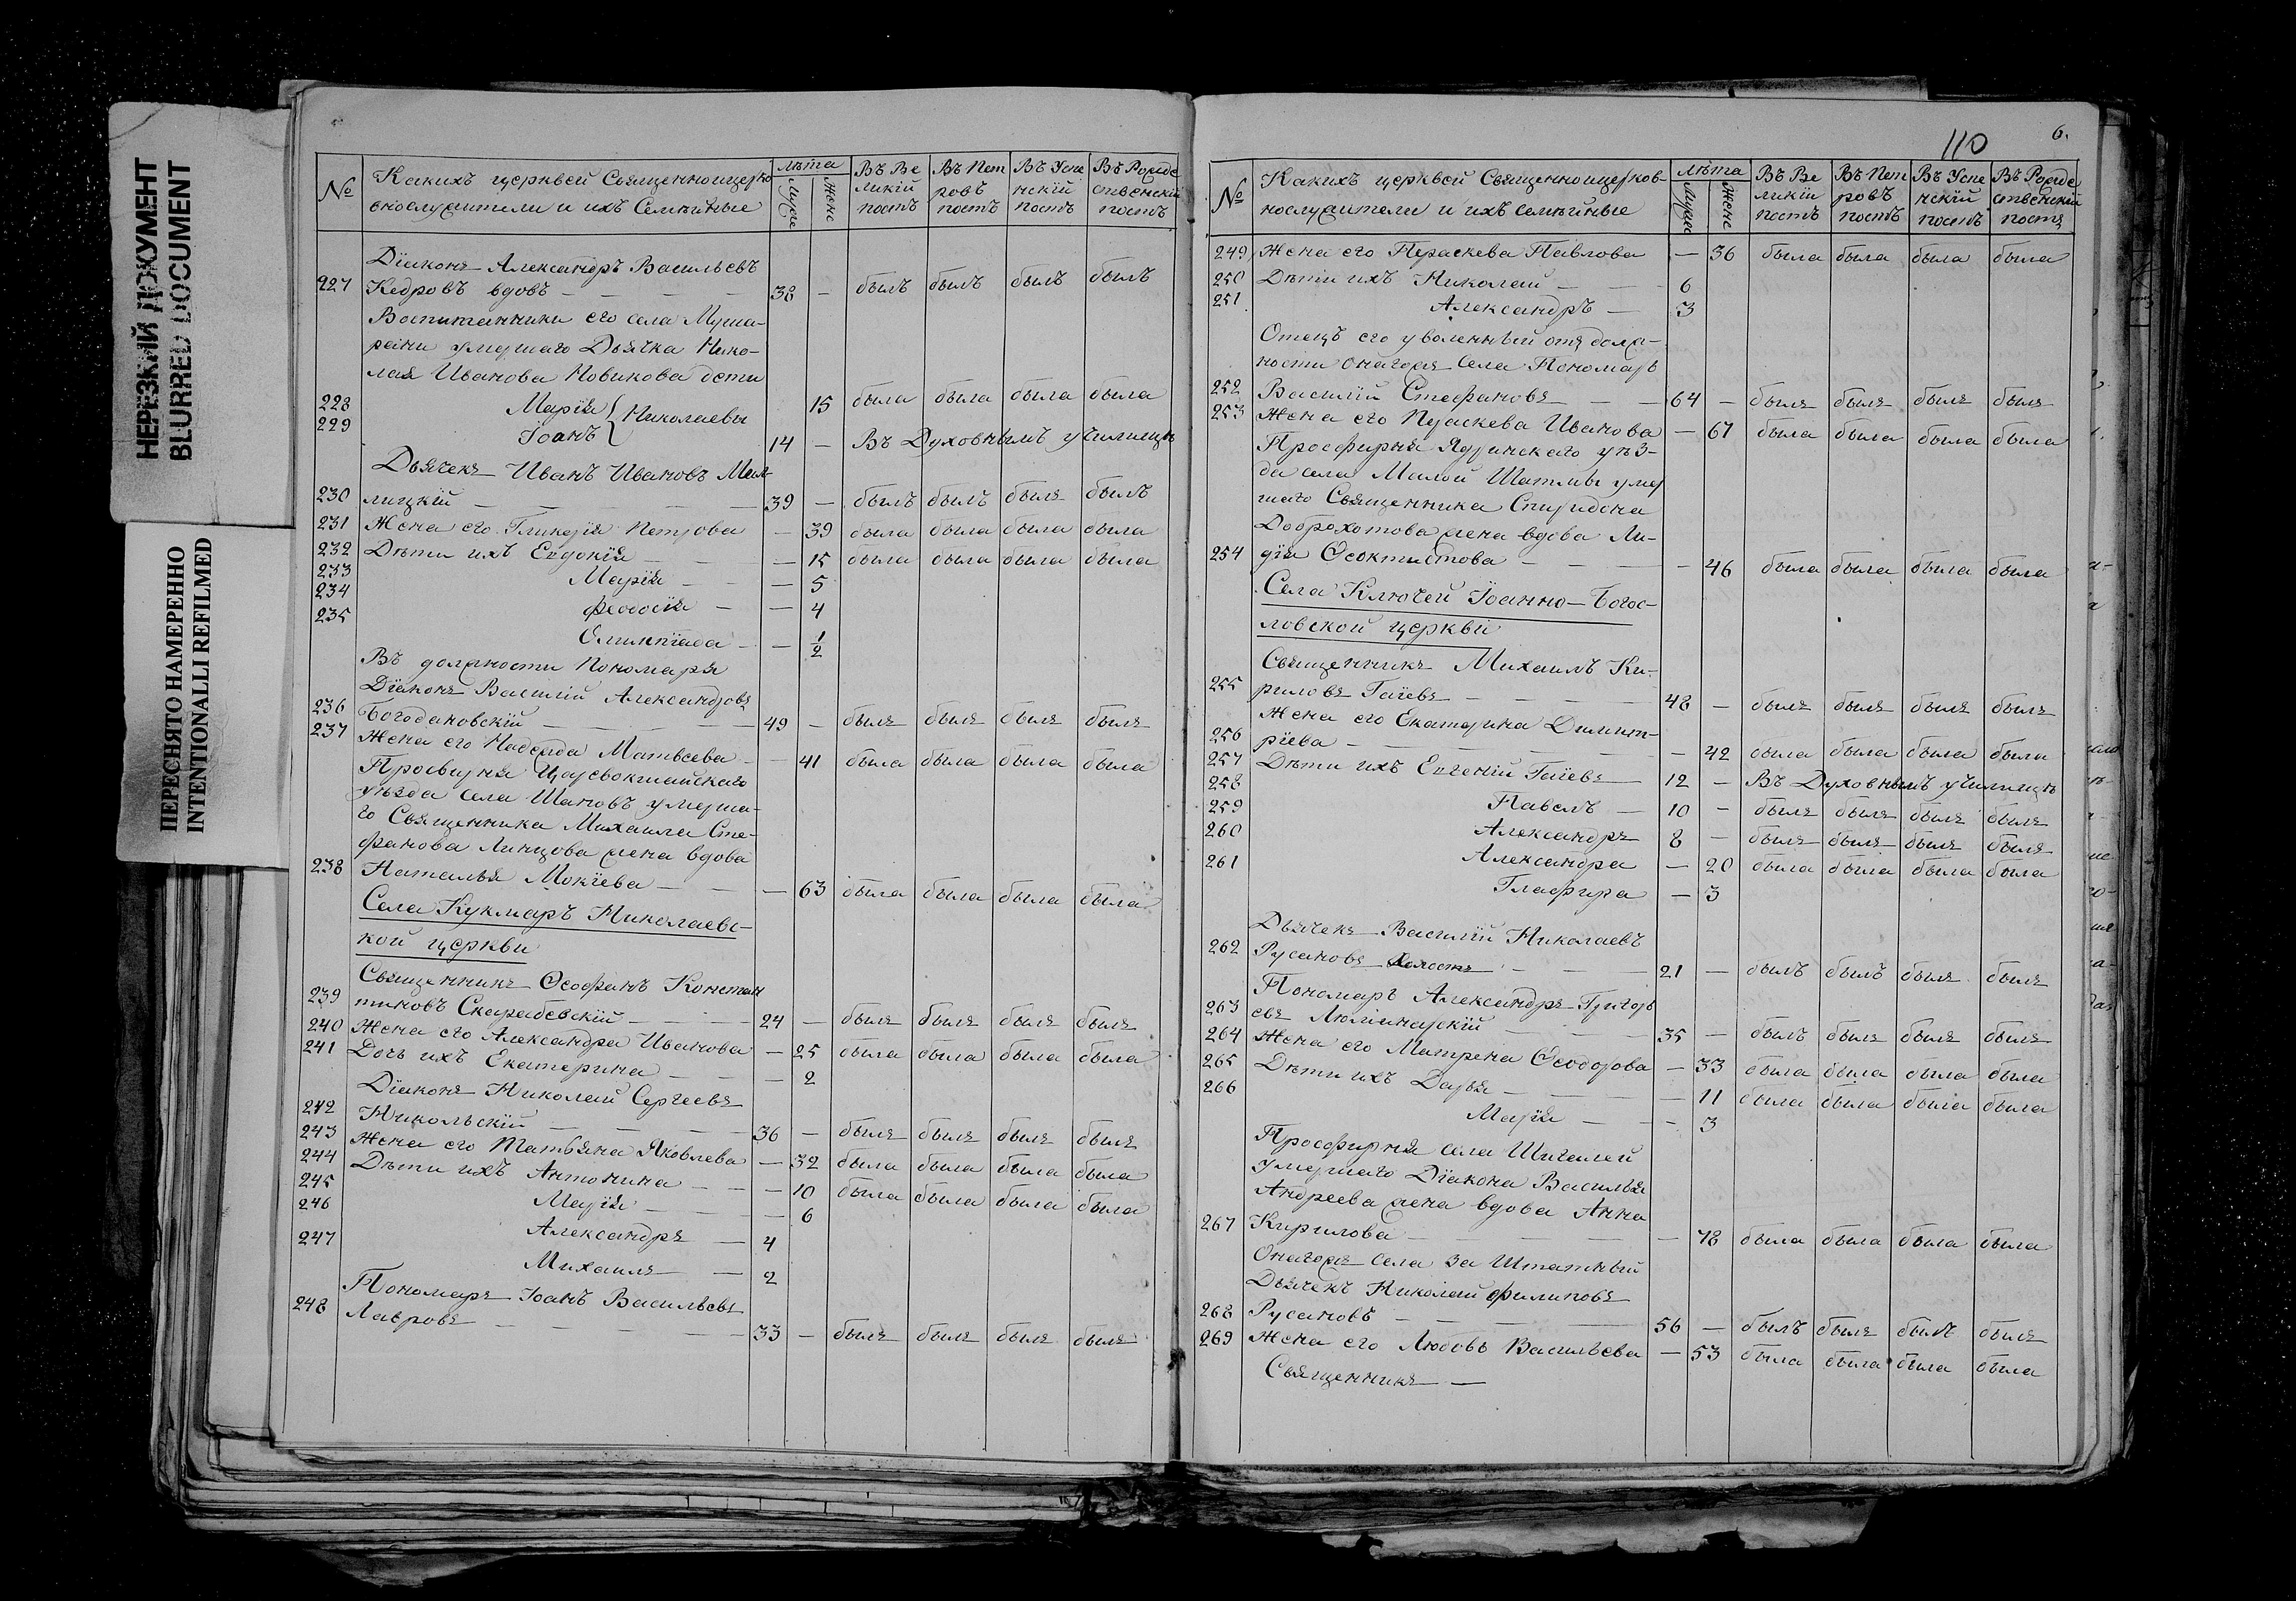 НЕРЕЗКИЙ ДОКУМЕНТ
BLURRED DOCUMENT
ПЕРЕСНЯТО НАМЕРЕННО
INTENTIONALLI REFILMED
№ Какихъ церквей Священноицерко лѣта Въ Ве Въ Пет Въ Успе Въ Рожде
внослужители и ихъ Семѣйные Муже Жене ликій ровъ нскій ственскій
постъ постъ постъ постъ
Діаконъ Александръ Васильевъ
227 Кедровъ вдовъ — 38 — былъ былъ былъ былъ
Воспитанники его села Муша-
рани умершаго Дьячка Нико-
лая Иванова Новикова дети
228 Марія { Николаевы 15 была была была была
229 Іоанъ 14 — Въ Духовнымъ училищѣ
Дьячекъ Иванъ Ивановъ Мил-
230 лицкій — 39 — былъ былъ былъ былъ
231 Жена его Гликерія Петрова — 39 была была была была
232 Дѣти ихъ Евдокія — 15 была была была была
233 Марія — 5
234 Феодосія — 4
235 Олимпіада — 1/2
Въ должности Пономаря
Діаконъ Василій Александровъ
236 Богодановскій — 49 — былъ былъ былъ былъ
237 Жена его Надежда Матвеева — 41 была была была была
Просвирня Царевокшайскаго
уѣзда села Шаповъ умерша-
го Священника Михаила Сте-
фанова Линцова жена вдова
238 Наталья Мокіева — 63 была была была была
Села Кукмаръ Николаевс-
кой церкви
Священникъ Ѳеофанъ Констан
239 тиновъ Скарабевскій — 24 — былъ былъ былъ былъ
240 Жена его Александра Иванова — 25 была была была была
241 Дочь ихъ Екатерина — 2
Діаконъ Николай Сергеевъ
242 Никольскій — 36 — былъ былъ былъ былъ
243 Жена его Татьяна Яковлева — 32 была была была была
244 Дѣти ихъ Антонина — 10 была была была была
245 Марія — 6
246 Александръ — 4
247 Михаилъ — 2
Пономарь Іоанъ Васильевъ
248 Лавровъ — 33 — былъ былъ былъ былъ
110 6.
№ Какихъ церквей Священноицерков- лѣта Въ Ве Въ Пет Въ Успе Въ Рожде
нослужители и ихъ семѣйные Мужес Жене ликій ровъ нскій ственскій
постъ постъ постъ постъ
249 Жена его Параскева Павлова — 36 была была была была
250 Дѣти ихъ Николай — 6
251 Александръ — 3
Отецъ его уволенный отъ долж-
ности онагоже Села Пономарь
252 Василій Стефановъ — 64 — былъ былъ былъ былъ
253 Жена его Параскева Иванова — 67 была была была была
Просфирня Ядринскаго уѣз-
да села Малой Шатьмы умер
шаго Священника Спиридона
Доброхотова жена вдова Ли-
254 дія Ѳеоктистова — 46 была была была была
Села Ключей Іоанно-Богос-
ловской церкви
Священникъ Михаилъ Ки-
255 риловъ Гаіевъ — 48 — былъ былъ былъ былъ
Жена его Екатерина Димит-
256 ріева — 42 была была была была
257 Дѣти ихъ Евгеній Гаіевъ 12 — Въ Духовнымъ училищѣ
258 Павелъ — 10 — былъ былъ былъ былъ
259 Александръ 8 — былъ былъ былъ былъ
260 Александра — 20 была была была была
261 Глафира — 3
Дьячекъ Василій Николаевъ
262 Русановъ Холостъ — 21 — былъ былъ былъ былъ
Пономарь Александръ Григорь
263 евъ Люминарскій — 35 — былъ былъ былъ былъ
264 Жена его Матрена Ѳеодорова — 33 была была была была
265 Дѣти ихъ Дарья — 11 была была была была
266 Марія — 3
Просфирня села Шигалей
умершаго Діакона Василья
Андреева жена вдова Анна
267 Кирилова — 78 была была была была
Онагоже Села За Штатный
Дьячекъ Николай Филиповъ
268 Русановъ — 56 — былъ былъ былъ былъ
269 Жена его Любовь Васильева — 53 была была была была
Священникъ —